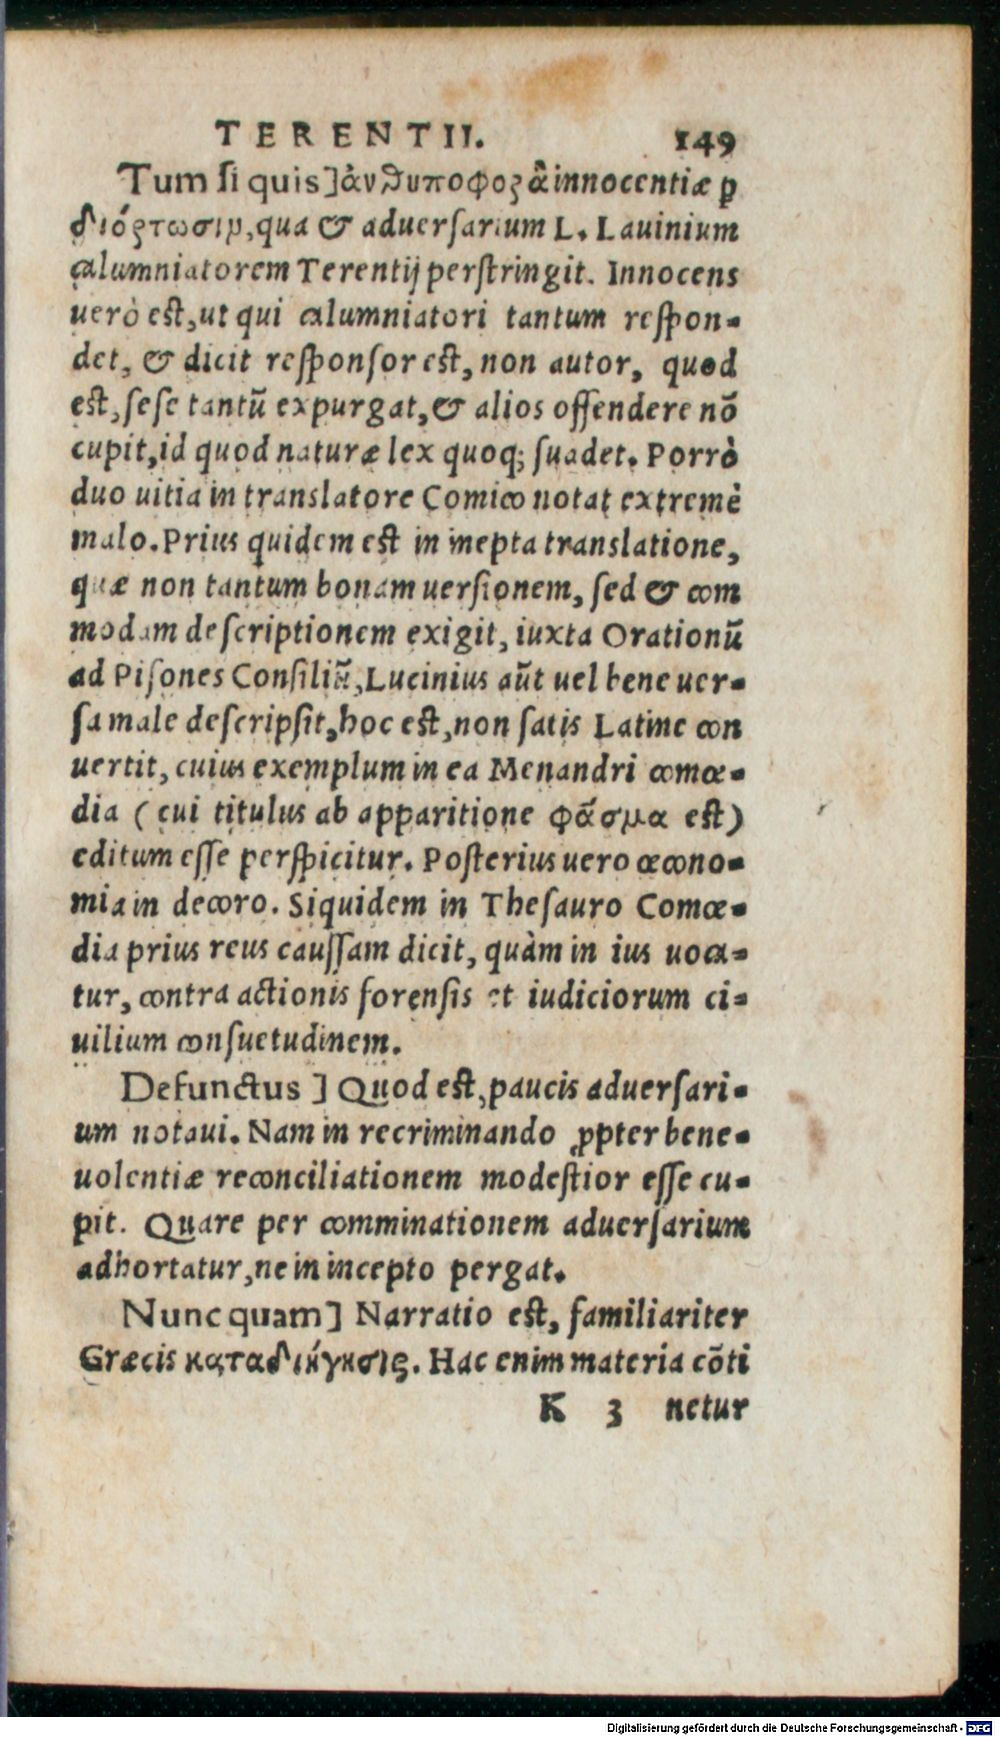 TERENTII. 149
Tum si quis] ἀνθυποφορᾶ innocentiæ ꝑ
διόρτωσιν, qua & aduersarium L. Lauinium
calumniatorem Terentij perstringit. Innocens
uerò est, ut qui calumniatori tantum respon-
det, & dicit responsor est, non autor, quod
est, sese tantũ expurgat, & alios offendere nõ
cupit, id quod naturæ lex quoq; suadet. Porrò
duo uitia in translatore Comico notat extremè
malo. Prius quidem est in inepta translatione,
quæ non tantum bonam uersionem, sed & com
modam descriptionem exigit, iuxta Orationũ
ad Pisones Consiliũ, Lucinius aũt uel bene uer-
sa male descripsit, hoc est, non satis Latine con
uertit, cuius exemplum in ea Menandri comœ-
dia (cui titulus ab apparitione φάσμα est)
editum esse perspicitur. Posterius uero œcono-
mia in decoro. Siquidem in Thesauro Comœ-
dia prius reus caussam dicit, quàm in ius uoca-
tur, contra actionis forensis et iudiciorum ci-
uilium consuetudinem.
Defunctus ] Quod est, paucis aduersari-
um notaui. Nam in recriminando ꝓpter bene-
uolentiæ reconciliationem modestior esse cu-
pit. Quare per comminationem aduersarium
adhortatur, ne in incepto pergat.
Nunc quam] Narratio est, familiariter
Græcis καταδιήγησις. Hac enim materia cõti
K 3 netur
Digitalisierung gefördert durch die Deutsche Forschungsgemeinschaft - DFG